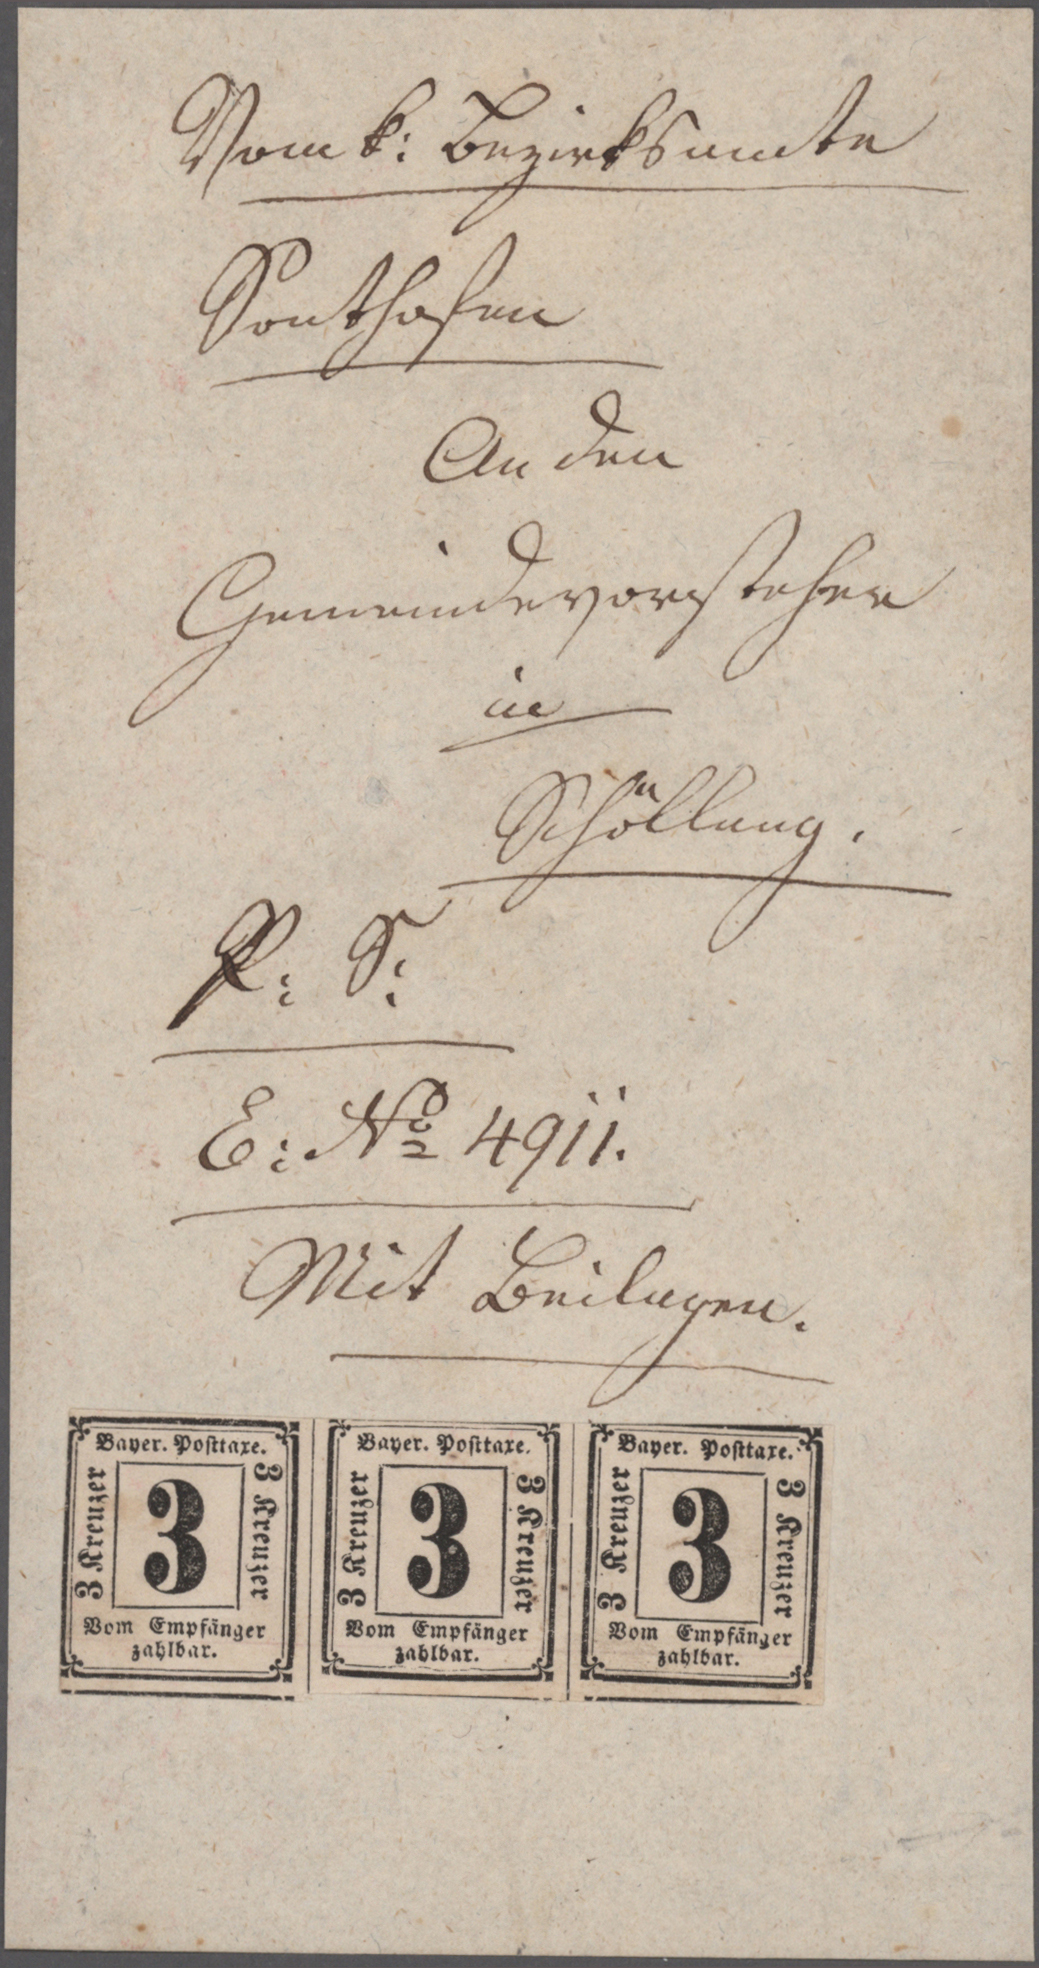 Vom k: Bezirksamte
Sonthofen
An den
Gemeindevorsteher
in
Schöllang.
P: S:
E: No 4911.
Mit Beilagen.
Bayer. Posttaxe.
3 Kreuzer
3
3 Kreuzer
Vom Empfänger
zahlbar.
Bayer. Posttaxe.
3 Kreuzer
3
3 Kreuzer
Vom Empfänger
zahlbar.
Bayer. Posttaxe.
3 Kreuzer
3
3 Kreuzer
Vom Empfänger
zahlbar.